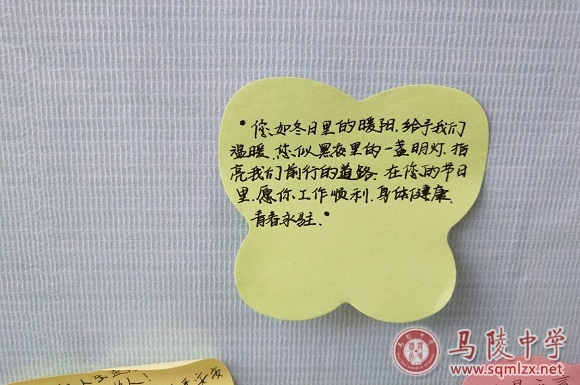 •您如冬日里的暖阳.给予我们
温暖.您似黑夜里的一盏明灯.指
亮我们前行的道路.在您的节日
里.愿你工作顺利.身体健康.
青春永驻.•
马陵中学
www.sqmlzx.net